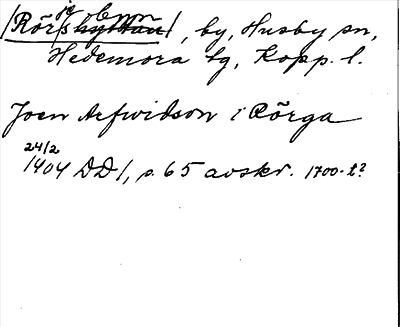 /Rörjebenn/, by, Husby sn,
Hedemora tg, Kopp. l.
Joen Arfwidson i Rõrga
24/2
1404 DD1, s. 65 avskr. 1700-t?